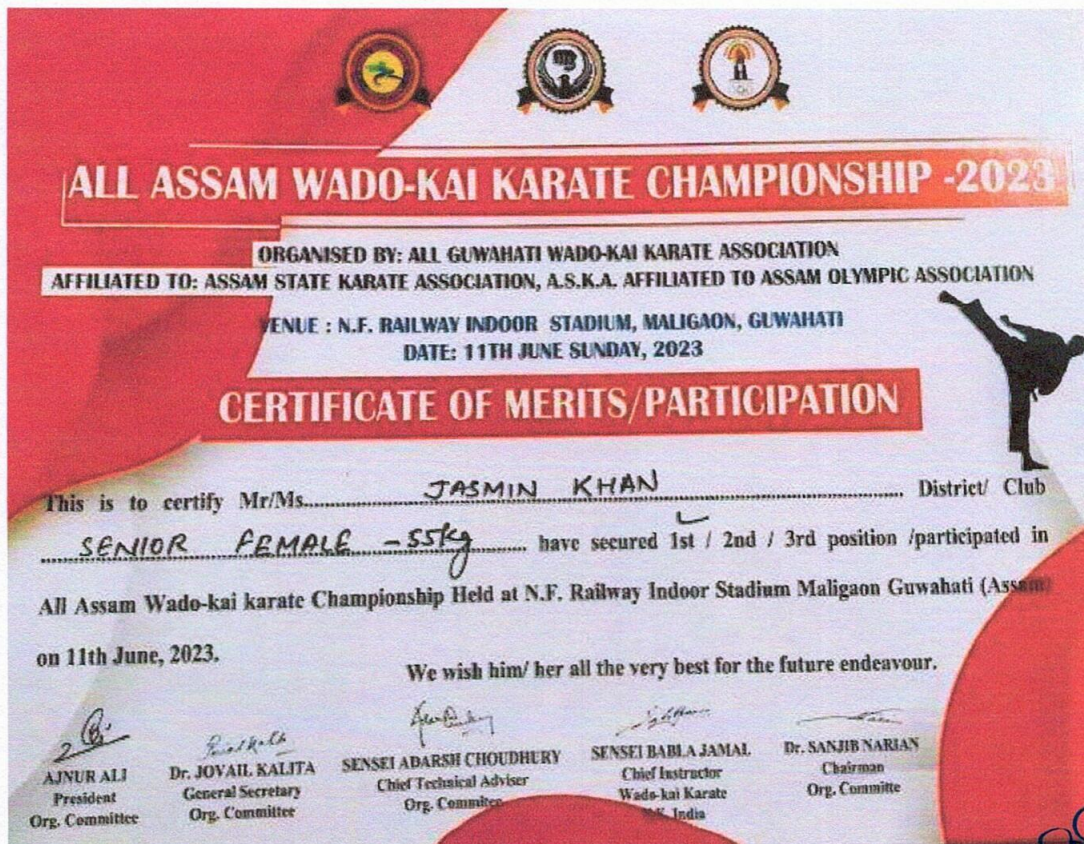 ALL ASSAM WADO-KAI KARATE CHAMPIONSHIP -2023
ORGANISED BY: ALL GUWAHATI WADO-KAI KARATE ASSOCIATION
AFFILIATED TO: ASSAM STATE KARATE ASSOCIATION, A.S.K.A. AFFILIATED TO ASSAM OLYMPIC ASSOCIATION
VENUE : N.F. RAILWAY INDOOR STADIUM, MALIGAON, GUWAHATI
DATE: 11TH JUNE SUNDAY, 2023
CERTIFICATE OF MERITS/PARTICIPATION
This is to certify Mr/Ms. JASMIN KHAN District/ Club
SENIOR FEMALE -55kg have secured 1st / 2nd / 3rd position /participated in
All Assam Wado-kai karate Championship Held at N.F. Railway Indoor Stadium Maligaon Guwahati (Assam)
on 11th June, 2023.
We wish him/ her all the very best for the future endeavour.
AJNUR ALI
President
Org. Committee
Dr. JOVAIL KALITA
General Secretary
Org. Committee
SENSEI ADARSH CHOUDHURY
Chief Technical Adviser
Org. Commitee
SENSEI BABLA JAMAL
Chief Instructor
Wado-kai Karate
India
Dr. SANJIB NARIAN
Chairman
Org. Committe